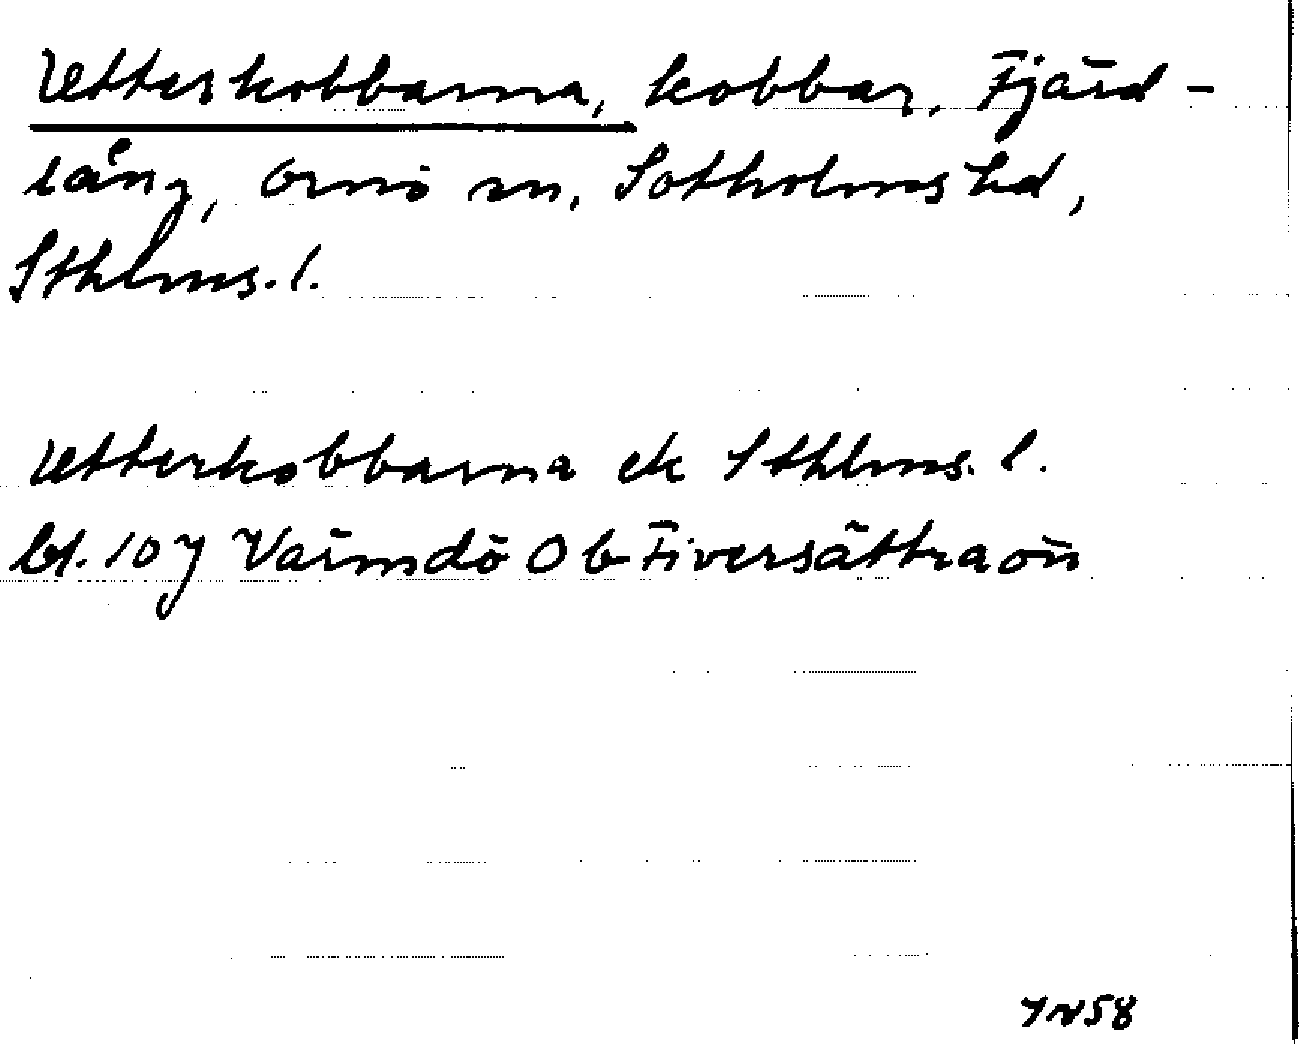 Utterskobbarna, kobbar, Fjärd-
lång, Ornö sn, Sotholms hd,
Sthlms. l.
Utterkobbarna ek Sthlms. l.
bl. 107 Värmdö Ob Fiversättraön
IN58